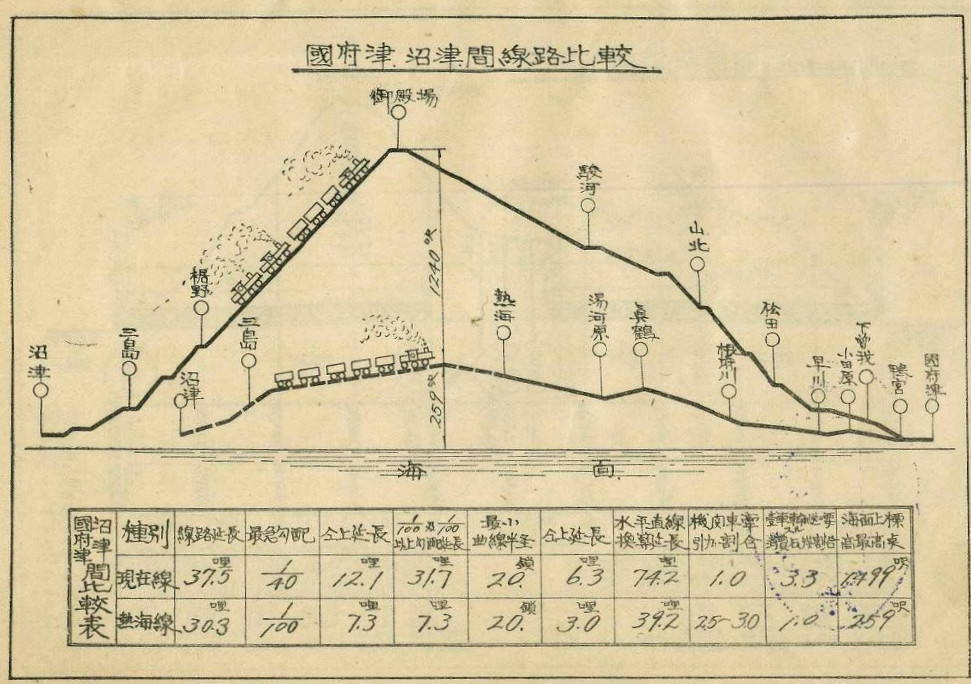 國府津 沼津間線路比較
御殿場
駿河
山北
松田
下曽我
國府津
鴨宮
小田原
早川
根府川
眞鶴
湯河原
熱海
三島
沼津
裾野
三島
沼津
1240呎
259呎
海面
沼津國府津間比較表
種別 線路延長 最急勾配 仝上延長 1/100及1/100以上勾配延長 最小曲線半径 仝上延長 水平直線換算延長 機関車牽引力割合 海面上標高最高点
現在線 37.5哩 1/40 12.1哩 31.7哩 20.鎖 6.3哩 74.2哩 1.0 3.3 1499呎
熱海線 30.3哩 1/100 7.3哩 7.3哩 20.鎖 3.0哩 39.2哩 2.5-3.0 1.0 259呎